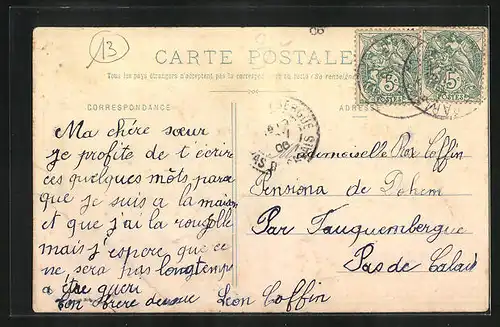 13
CARTE POSTALE
Tous les pays étrangers n'acceptent pas la correspondance au dos (se renseigner
CORRESPONDANCE
ADRESSE
Ma chère sœur
je profite de t'écrire
ces quelques môts parce
que je suis a la maison
et que j'ai la rougolle
mais j'espere que ce
ne sera pas longtemps
a être gueri
ton frère Léon Coffin
Mademoiselle Coffin
Pensiona de Dohem
Par Fauquembergue
Pas de Calais
5c 5c
POSTES POSTES